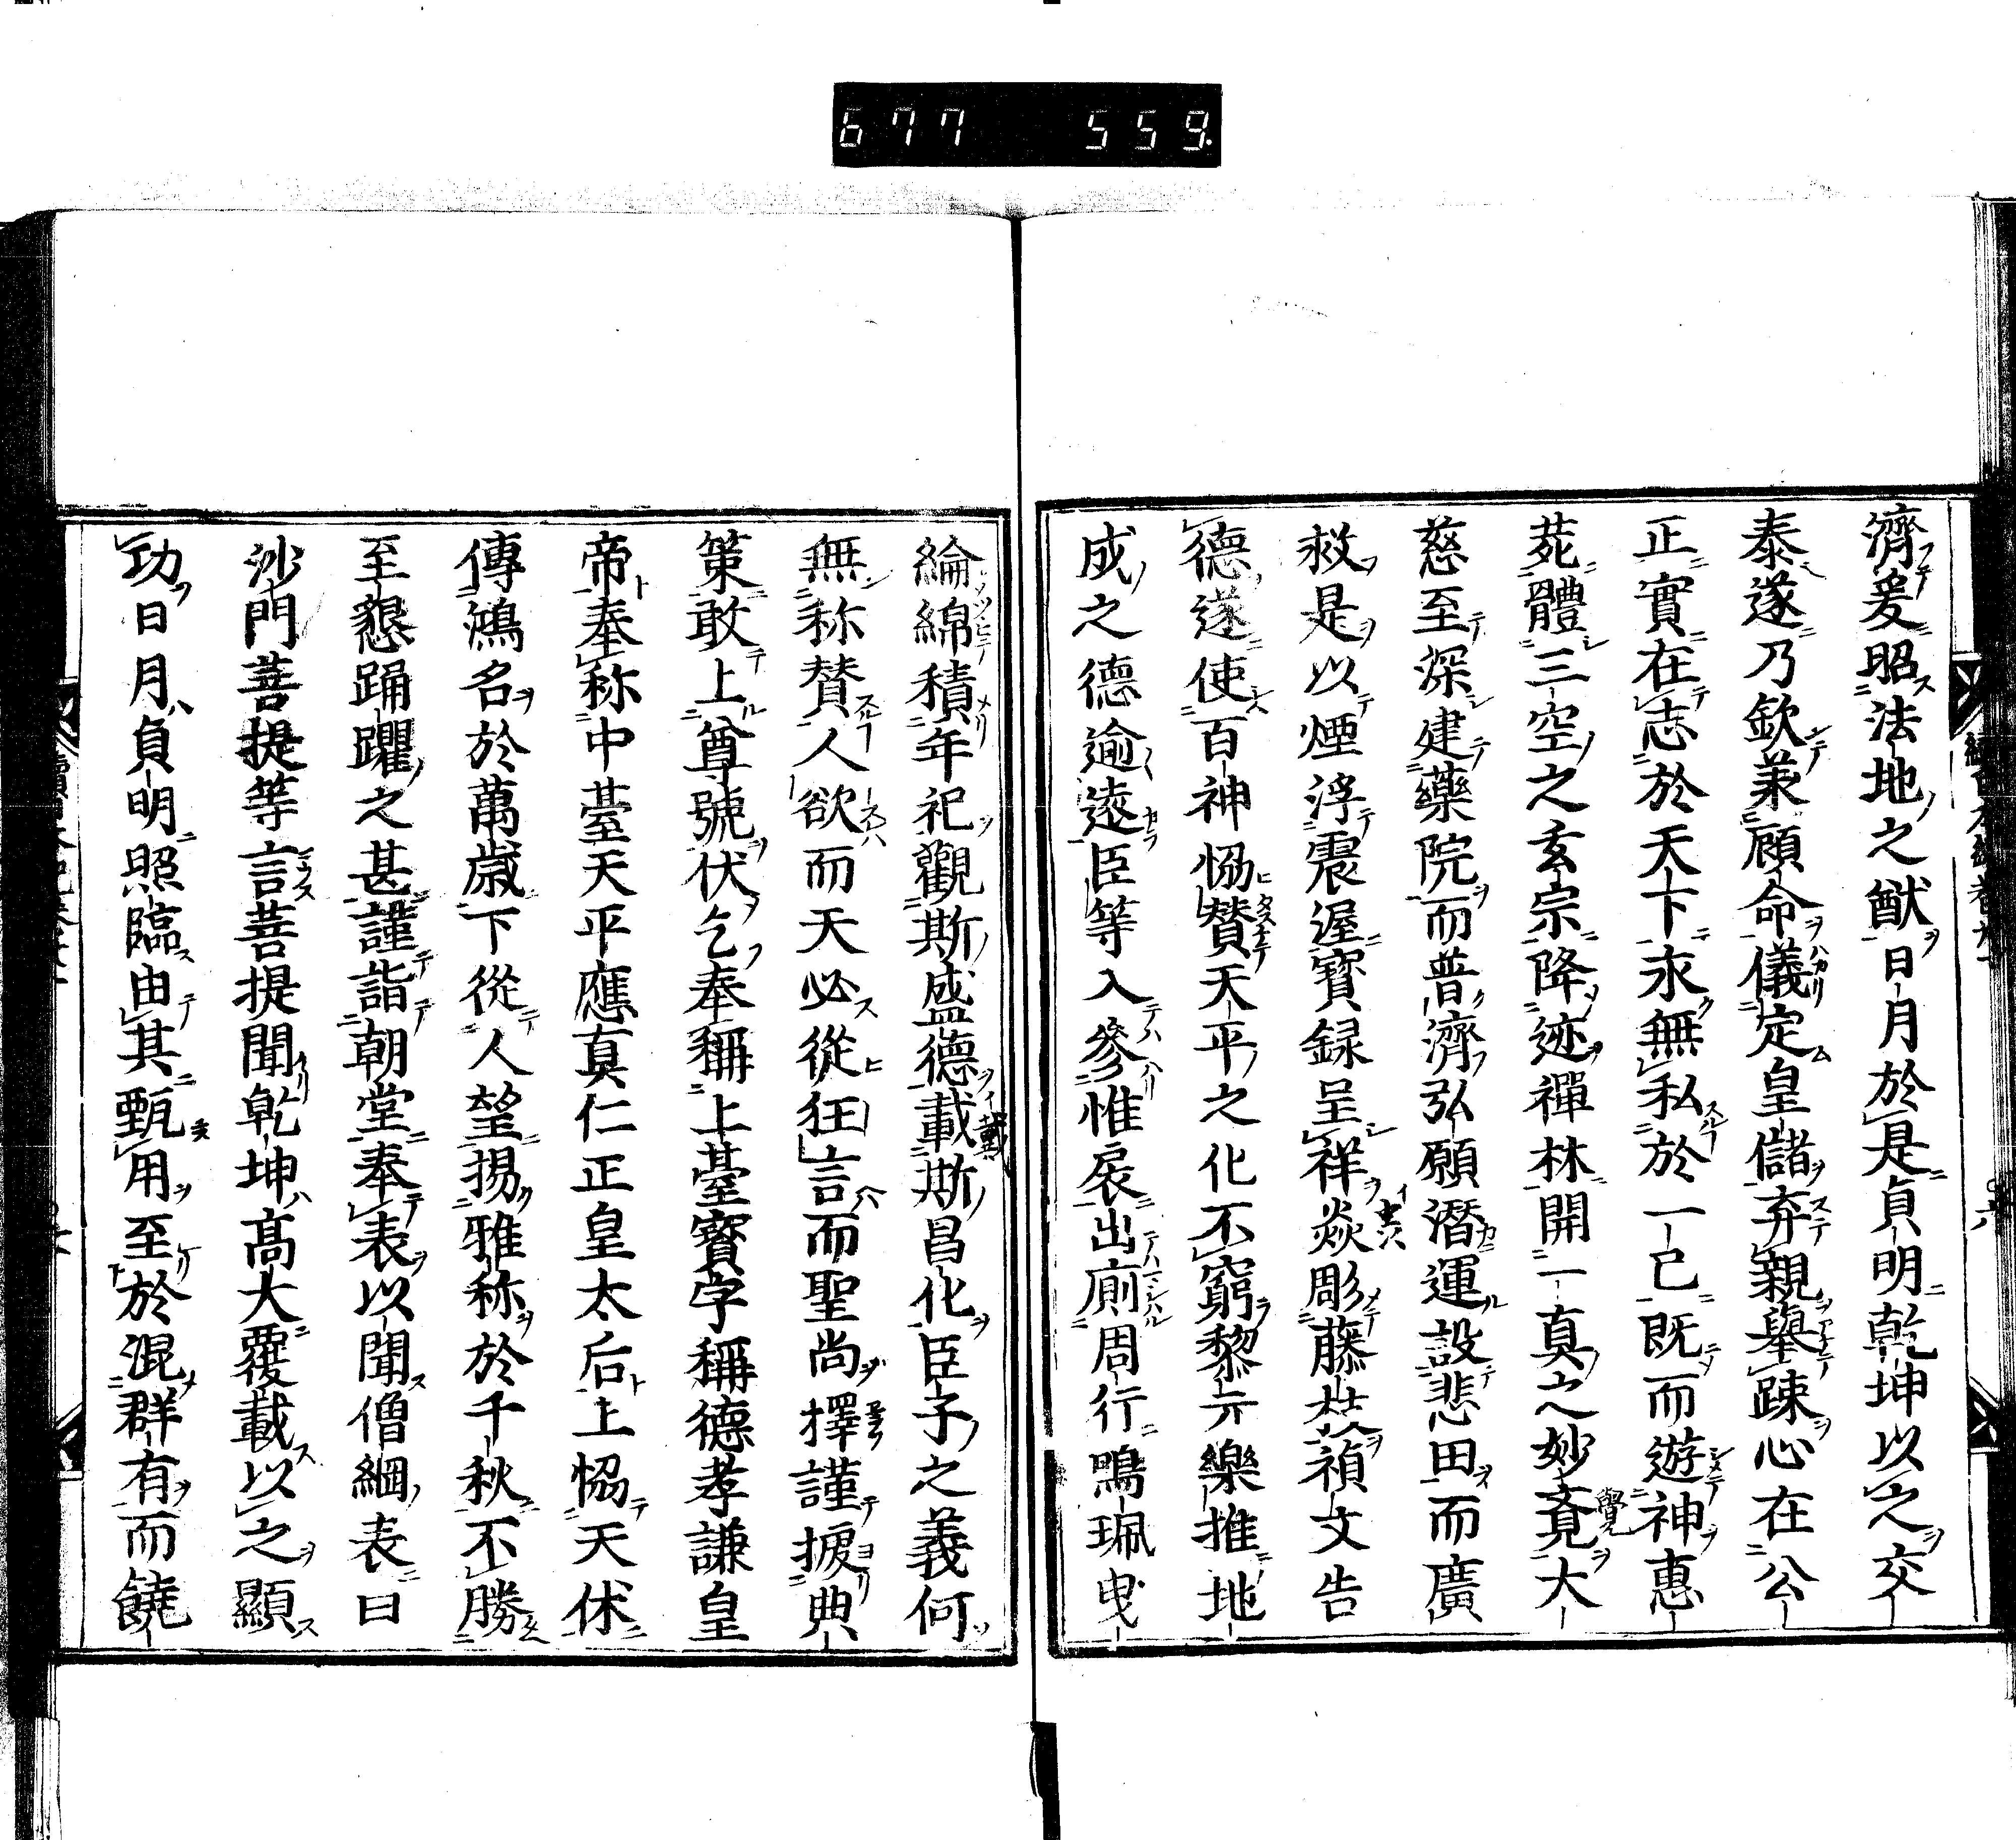 677 559
濟爰昭法地之猷日月於是貞明乾坤以之交
泰遂乃欽承顧命儀定皇儲弃親舉踈心在公
正實在志於天下永無私於一己既而遊神惠
苑體三空之玄宗降迹禪林開一真之妙覔大
慈至深建藥院而普濟弘願潛運設悲田而廣
救是以煙浮震渥寶録呈祥焱彫藤枝禎文告
德遂使百神恊賛天平之化不窮黎元樂推地
成之德逾遠臣等入參帷扆出廁周行鳴珮曳
綸綿積年祀觀斯盛德載斯昌化臣子之義何
無称賛人欲而天必從狂言而聖尚擇謹㨿典
策敢上尊號伏乞奉稱上臺寳字稱德孝謙皇
帝奉称中臺天平應真仁正皇太后上恊天休
傳鴻名於萬歳下從人望揚雅称於千秋不勝
至懇踊躍之甚謹詣朝堂奉表以聞僧綱表曰
沙門菩提等言菩提聞乾坤高大覆載以之顯
功日月貞明照臨由其甄用至於混群有而饒